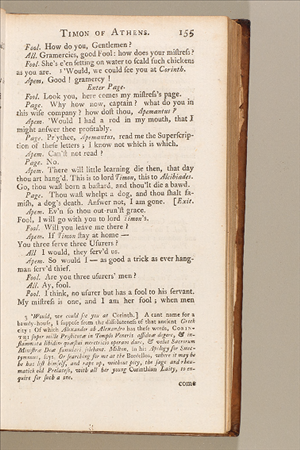 TIMON OF ATHENS. 155
Fool. How do you, Gentlemen?
All. Gramercies, good Fool: how does your mistress?
Fool. She's e'en setting on water to scald such chickens
as you are. 3 'Would, we could see you at Corinth.
Apem. Good! gramercy!
Enter Page.
Fool. Look you, here comes my mistress's page.
Page. Why how now, captain? what do you in
this wise company? how dost thou, Apemantus?
Apem. 'Would I had a rod in my mouth, that I
might answer thee profitably.
Page. Pr'ythee, Apemantus, read me the Superscrip-
tion of these letters; I know not which is which.
Apem. Can'st not read?
Page. No.
Apem. There will little learning die then, that day
thou art hang'd. This is to lord Timon, this to Alcibiades.
Go, thou wast born a bastard, and thou'lt die a bawd.
Page. Thou wast whelpt a dog, and thou shalt fa-
mish, a dog's death. Answer not, I am gone. [Exit.
Apem. Ev'n so thou out-run'st grace.
Fool, I will go with you to lord Timon's.
Fool. Will you leave me there?
Apem. If Timon stay at home —
You three serve three Usurers?
All I would, they serv'd us.
Apem. So would I — as good a trick as ever hang-
man serv'd thief.
Fool. Are you three usurers' men?
All. Ay, fool.
Fool. I think, no usurer but has a fool to his servant.
My mistress is one, and I am her fool; when men
3 'Would, we could see you at Corinth.] A cant name for a
bawdy-house, I suppose from the dissoluteness of that ancient Greek
city; Of which Alexander ab Alexandro has these words, CORIN-
THI super mille Prostitutæ in Templo Veneris assiduæ degere, & in-
flammata libidine quæstui meretricio operam dare, & velut Sacrorum
Ministræ Deæ famulari solebant. Milton, in his Apology for Smec-
tymnuus, says, Or searching for me at the Bordellos, where it may be
he has lost himself, and raps up, without pity, the sage and rheu-
matick old Prelatess, with all her young Corinthian Laity, to en-
quire for such a one.
come